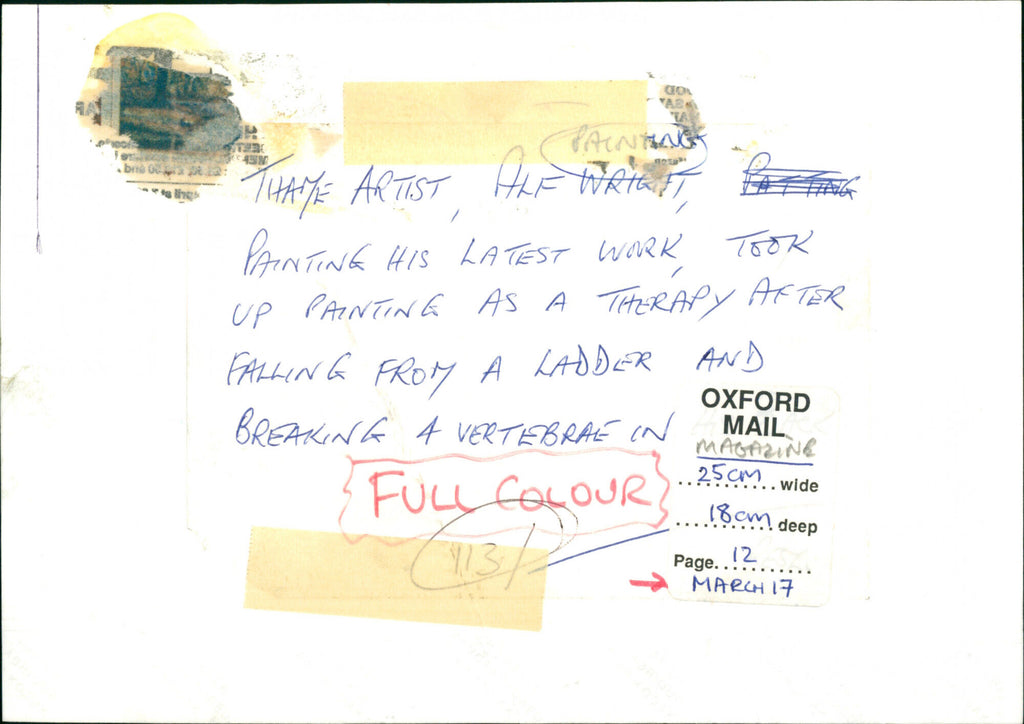 PAINTING
THAME ARTIST, ALF WRIGHT,
PAINTING HIS LATEST WORK, TOOK
UP PAINTING AS A THERAPY AFTER
FALLING FROM A LADDER AND
BREAKING A VERTEBRAE IN
FULL COLOUR
113
OXFORD
MAIL
MAGAZINE
25cm wide
18cm deep
Page. 12
MARCH 17